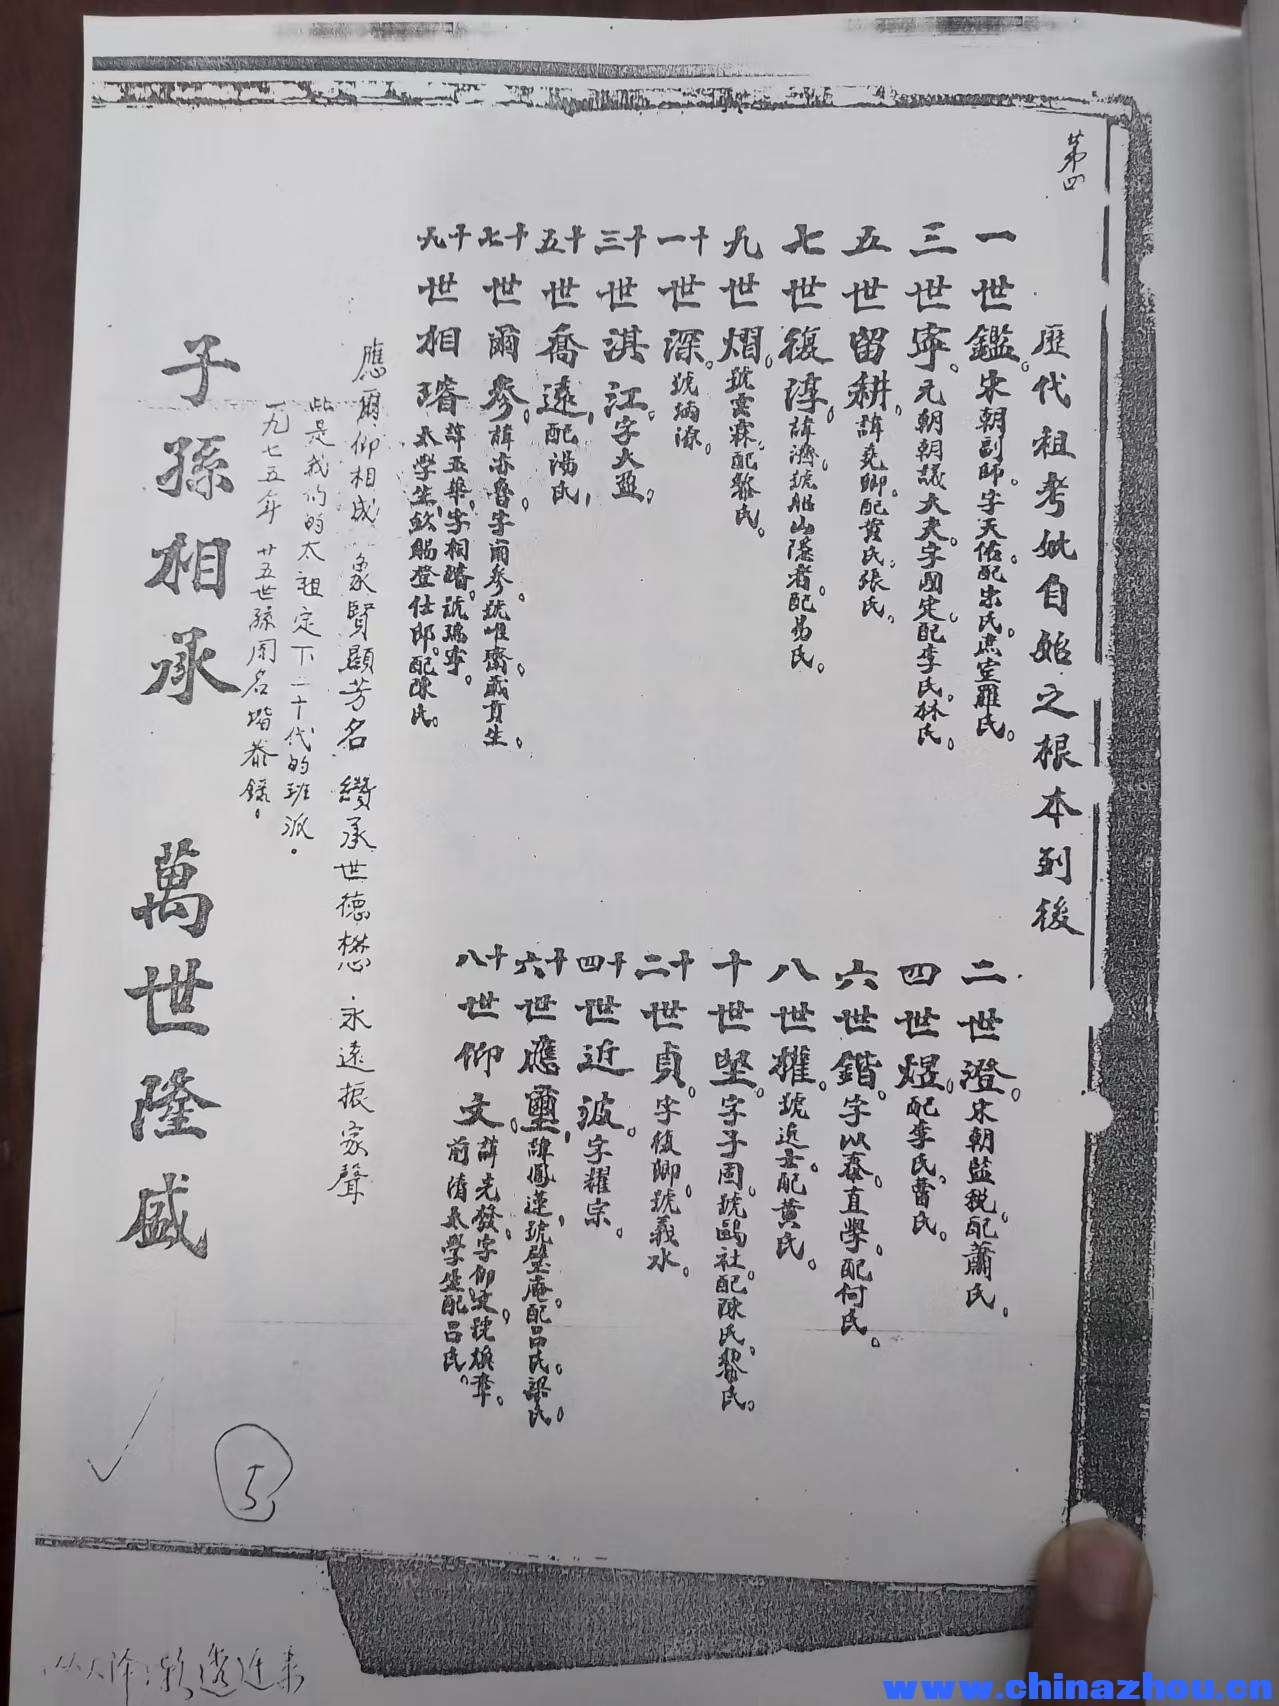 第四
歷代祖考妣自始之根本列後
一世鑑。宋朝副師。字天佑配宋氏。庶室羅氏。
二世澄。宋朝監税。配蕭氏。
三世寧。元朝朝議大夫。字國定。配李氏。林氏。
四世煜。配李氏。曹氏。
五世留耕。諱堯卿。配黄氏。張氏。
六世鍇。字以泰。直學。配何氏。
七世復淳。諱濟。號 山隱者。配易氏。
八世權。號近 。配黄氏。
九世熠。號雲霖。配黎氏。
十世堅。字子固。號鷗社。配陳氏。黎氏。
十一世深。號 源。
十二世貞。字復卿。號義水。
十三世淇江。字大亞。
十四世近波。字耀宗。
十五世喬遠，配湯氏，
十六世應璽，諱鳳蓮，號璧庵。配呂氏。梁氏。
十七世爾參。諱亦魯。字爾參。號唯齋。 貢生。
十八世仰文。諱光發。字仰文。號煥章。前清太學生配呂氏。
十九世相璿 諱玉華，字相璿。號瑞寧。太學生，欽賜登仕郎。配陳氏。
應爾仰相成 象賢顯芳名 纘承世德懋 永遠振家聲
此是我们的太祖定下二十代的班派。
一九七五年 廿五世孫周名堦恭錄。
子孫相承 萬世隆盛
5
www.chinazhou.cn